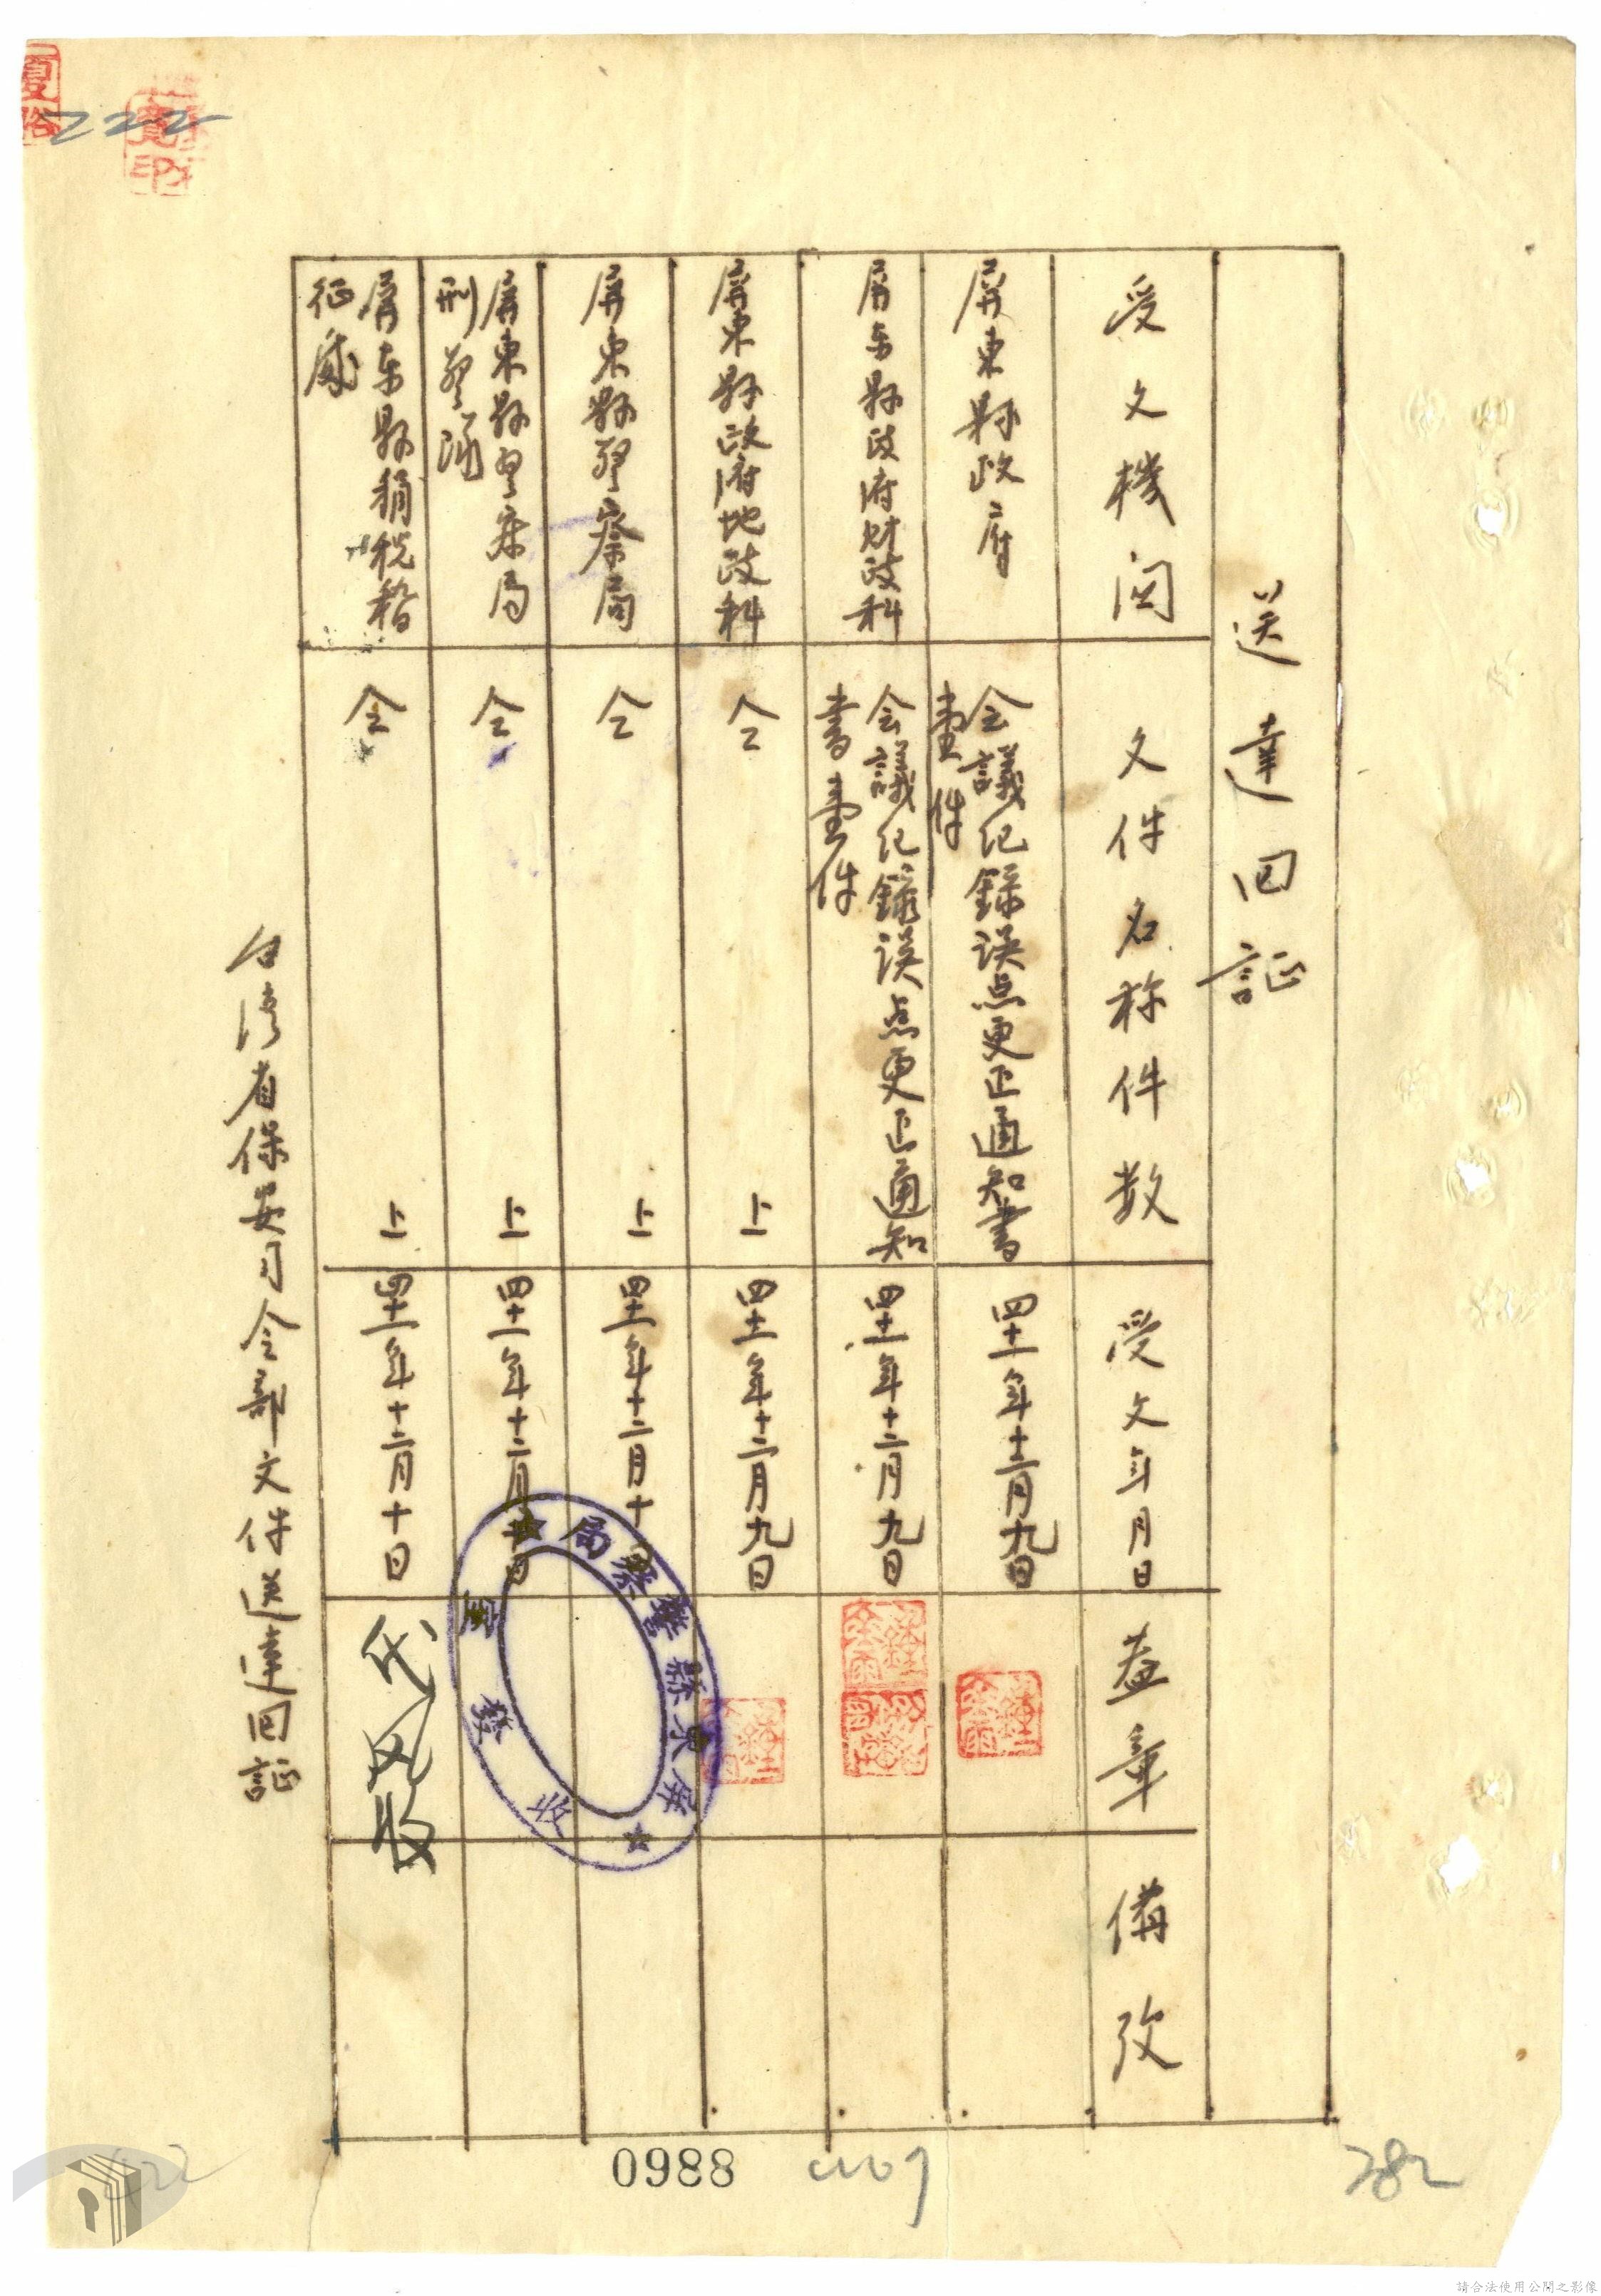 送達回証
受文機関
文件名称件数
受文年月日
蓋章
備攷
屏東縣政府
会議紀錄误点更正通知書
壹件
四十一年十二月九日
屏东縣政府财政科
会議紀錄误点更正通知
書壹件
四十一年十二月九日
屏東縣政府地政科
仝上
四十一年十二月九日
屏東縣警察局
仝上
四十一年十二月十日
屏東縣警察局
刑警隊
仝上
四十一年十二月十日
屏东縣稅稽
征處
仝上
四十一年十二月十日
台湾省保安司令部文件送達回証
屏東縣警察局
收發室
0988
222
282
請合法使用公開之影像